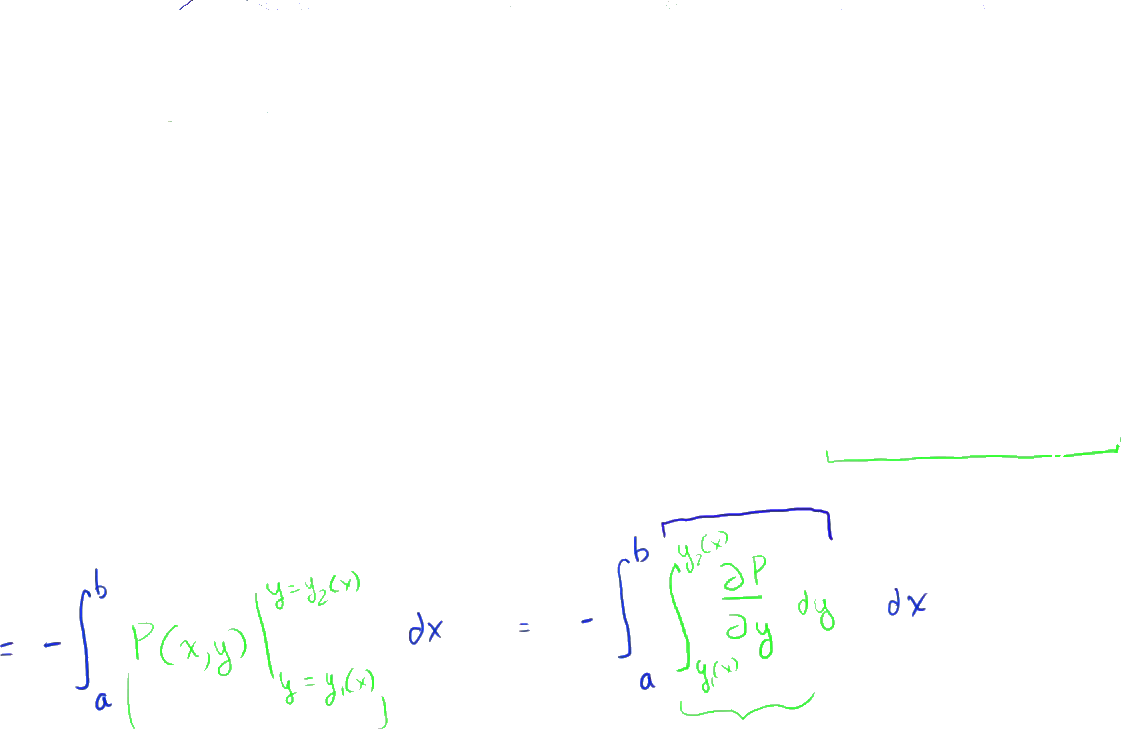 = - ∫_a^b P(x,y) |_{y=y₁(x)}^{y=y₂(x)} dx = - ∫_a^b ∫_{y₁(x)}^{y₂(x)} ∂P/∂y dy dx